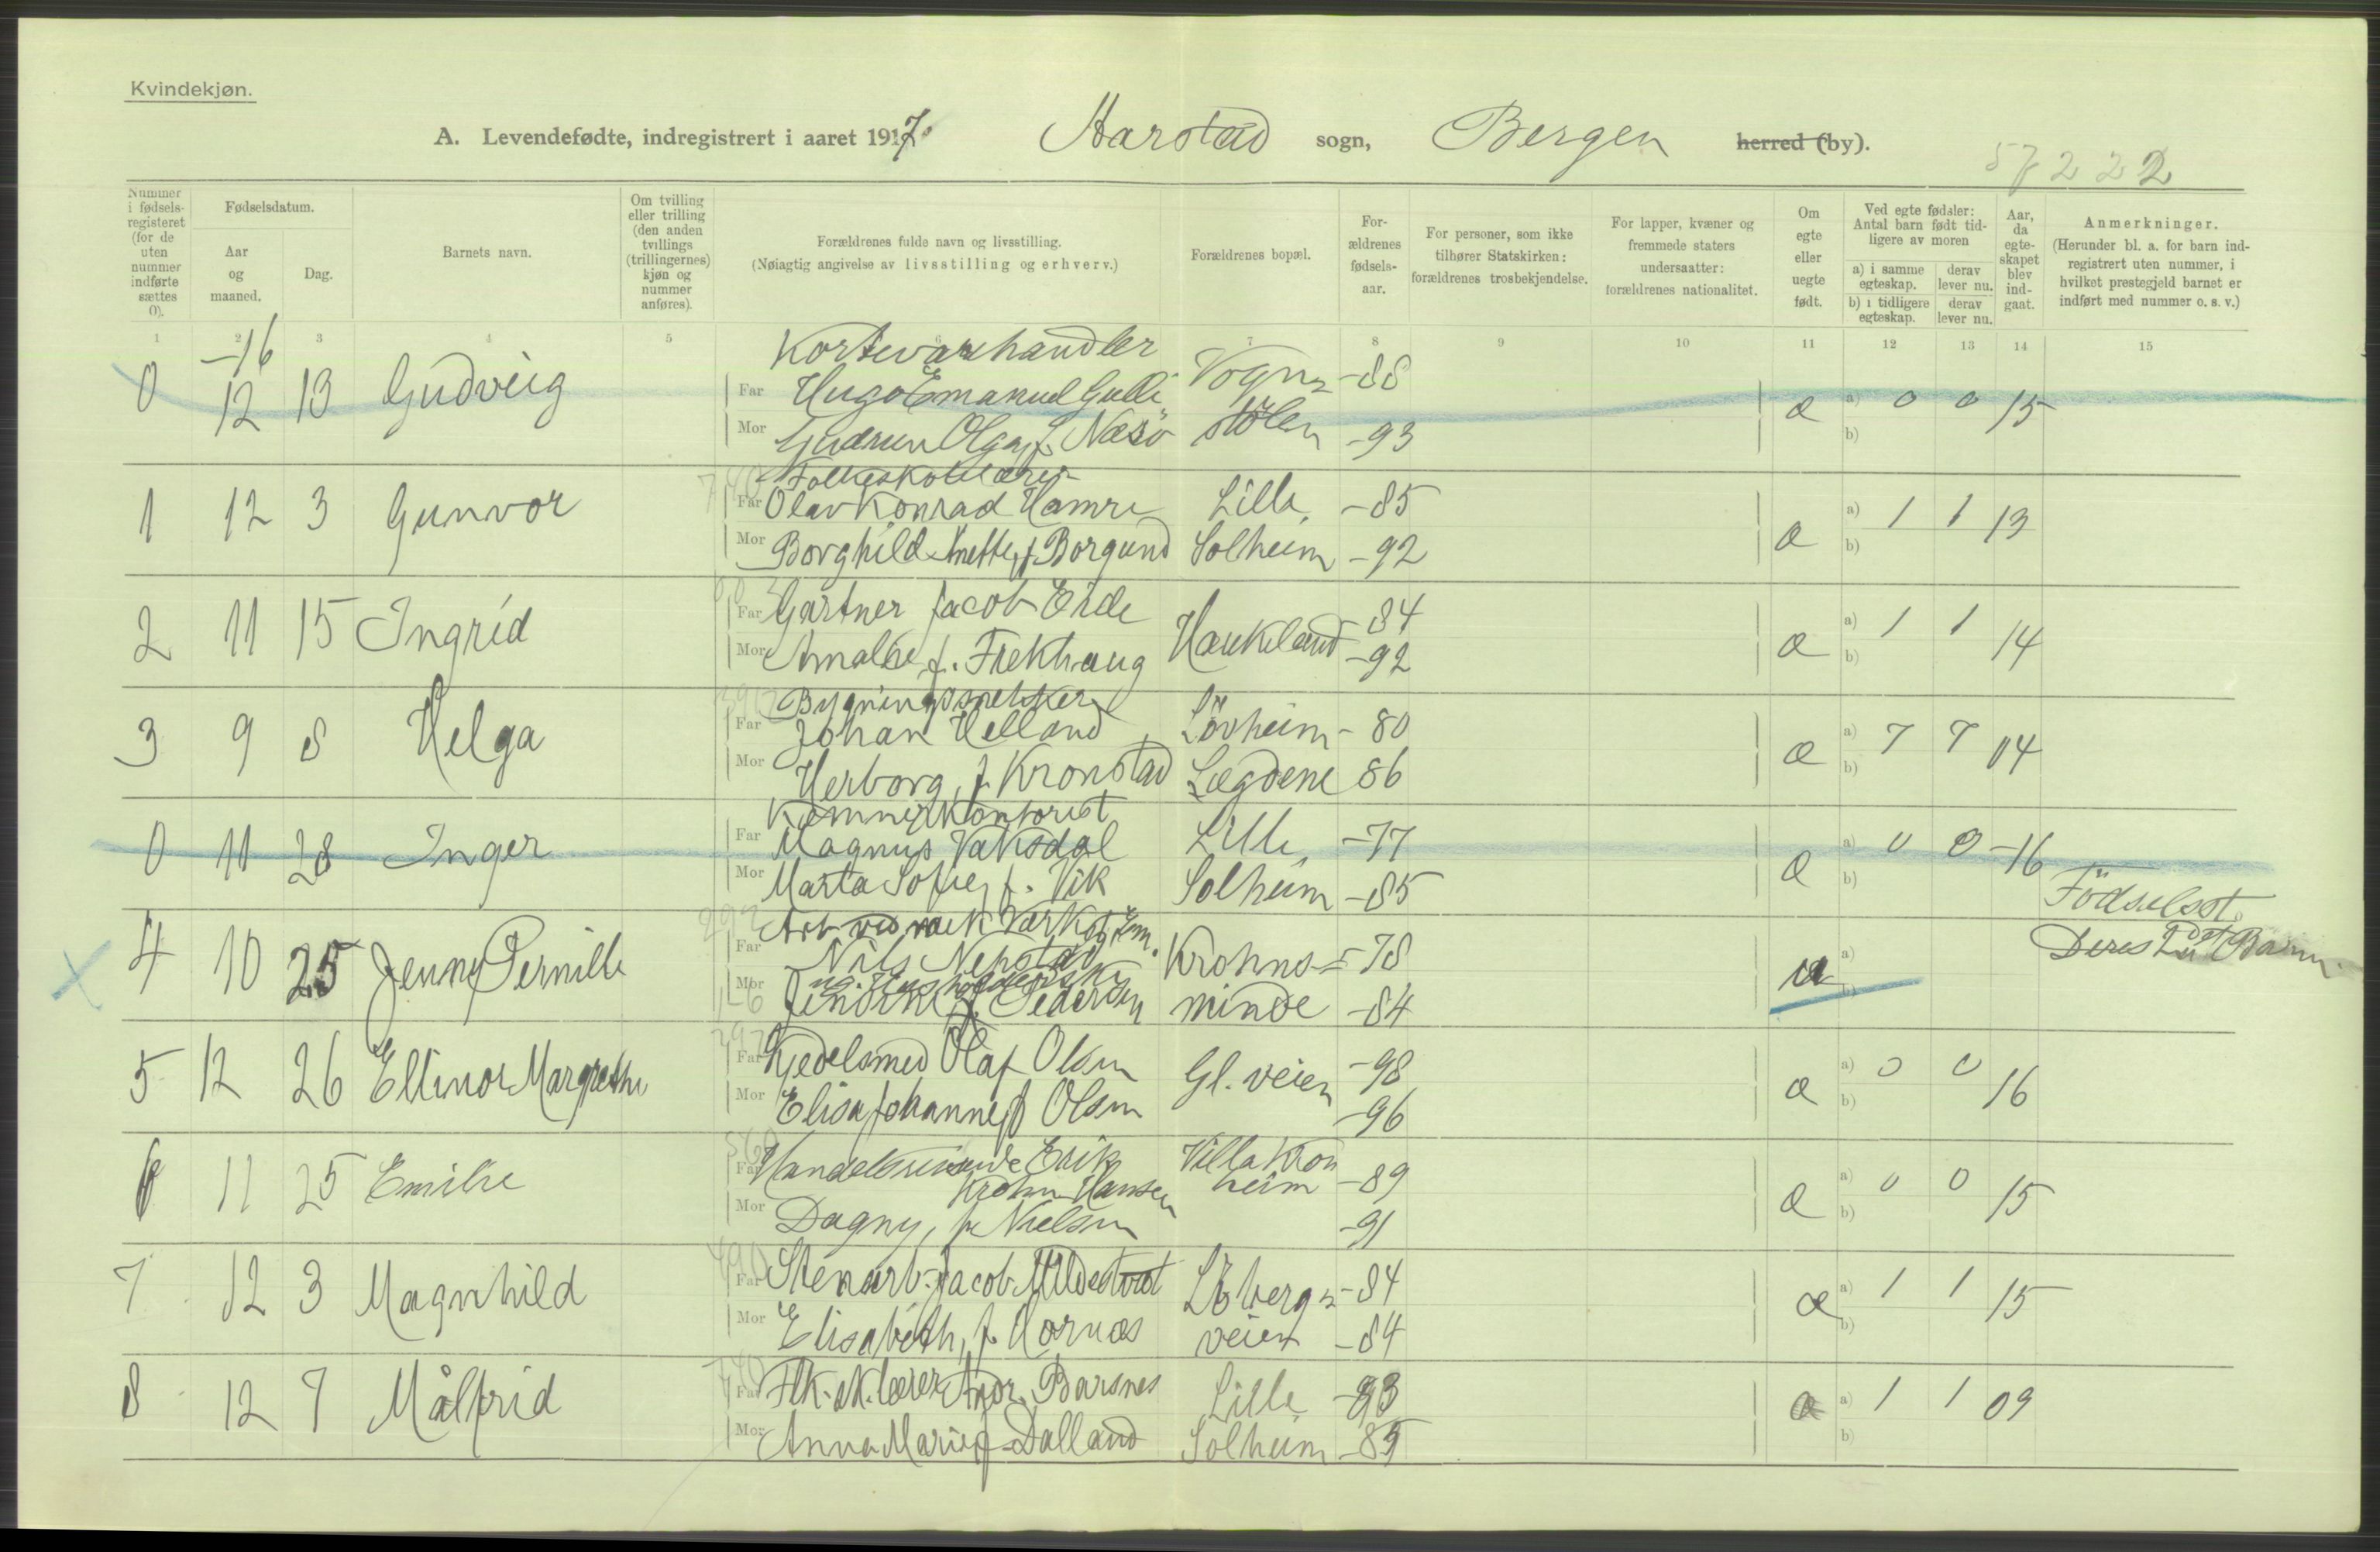 Kvindekjøn.
A. Levendefødte, indregistrert i aaret 1917. Aarstad sogn, Bergen herred (by).
57222
Nummer i fødsels-registeret (for de uten nummer indførte sættes 0).
Fødselsdatum.
Aar og maaned.
Dag.
Barnets navn.
Om tvilling eller trilling (den anden tvillings (trillingernes) kjøn og nummer anføres).
Forældrenes fulde navn og livsstilling.
(Nøiagtig angivelse av livsstilling og erhverv.)
Forældrenes bopæl.
For-ældrenes fødsels-aar.
For personer, som ikke tilhører Statskirken: forældrenes trosbekjendelse.
For lapper, kvæner og fremmede staters undersaatter: forældrenes nationalitet.
Om egte eller uegte født.
Ved egte fødsler: Antal barn født tid-ligere av moren
a) i samme egteskap. derav lever nu.
b) i tidligere egteskap. derav lever nu.
Aar, da egte-skapet blev ind-gaat.
Anmerkninger.
(Herunder bl. a. for barn ind-registrert uten nummer, i hvilket prestegjeld barnet er indført med nummer o. s. v.)
1 2 3 4 5 6 7 8 9 10 11 12 13 14 15
-16 Kortevarehandler
0 12 13 Gudveig Far Hugo Emanuel Gulli Vogn= -88 a) 0 0 15
Mor Gudrun Olga, f. Næsö stølen -93 b)
Folkeskolelærer
1 12 3 Gunvor Far Olav Konrad Hamre Lille -85 a) 1 1 13
Mor Borghild Anette, f. Borgund Solheim -92 b)
2 11 15 Ingrid Far Gartner Jacob Eide Haukeland -84 a) 1 1 14
Mor Amalie f. Frekhaug -92 b)
Bygningssnekker
3 9 8 Helga Far Johan Helland Lövheim -80 a) 7 7 04
Mor Herborg, f. Kronstad Lægdene 86 b)
Kemnerkontorist
0 11 28 Inger Far Magnus Vaksdal Lille -77 a) 0 0 -16
Mor Marta Sofie, f. Vik Solheim -85 b)
Födselsst.
4 10 25 Jenny Pernille Far Nils Nepstad Krohns= -78 a) Deres Barn.
Mor Pedersen minde -84 b)
5 12 26 Ellinor Margrethe Far Kjedelsmed Olaf Olsen Gl. veien -98 a) 0 0 16
Mor Elisa Johanne f Olsen -96 b)
6 11 25 Emilie Far Handelsreisende Erik Villa Kron
Krohn Hansen heim -89 a) 0 0 15
Mor Dagny, f. Nielsen -91 b)
7 12 3 Magnhild Far Stenarb. Jacob Mildestvedt Löberg= -84 a) 1 1 15
Mor Elisabeth, f. Hornæs veien -84 b)
8 12 7 Målfrid Far Flk. sk. lærer Andr. Barsnes Lille -83 a) 1 1 09
Mor Anna Marie f Dalland Solheim -85 b)